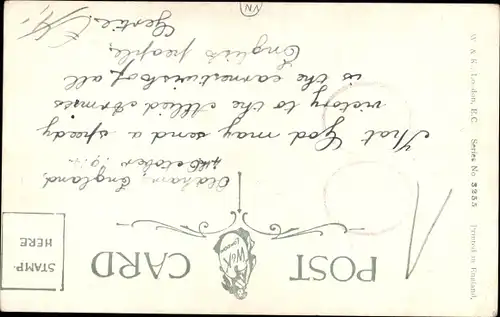 POST CARD
W & K
LONDON
STAMP
HERE
Oldham England,
4th October 191
That God may send a speedy
victory to the Allied Armies
is the earnest wish of all
English people,
Gertie
W. & K., London, E.C. Series No 3255 Printed in England,
VN